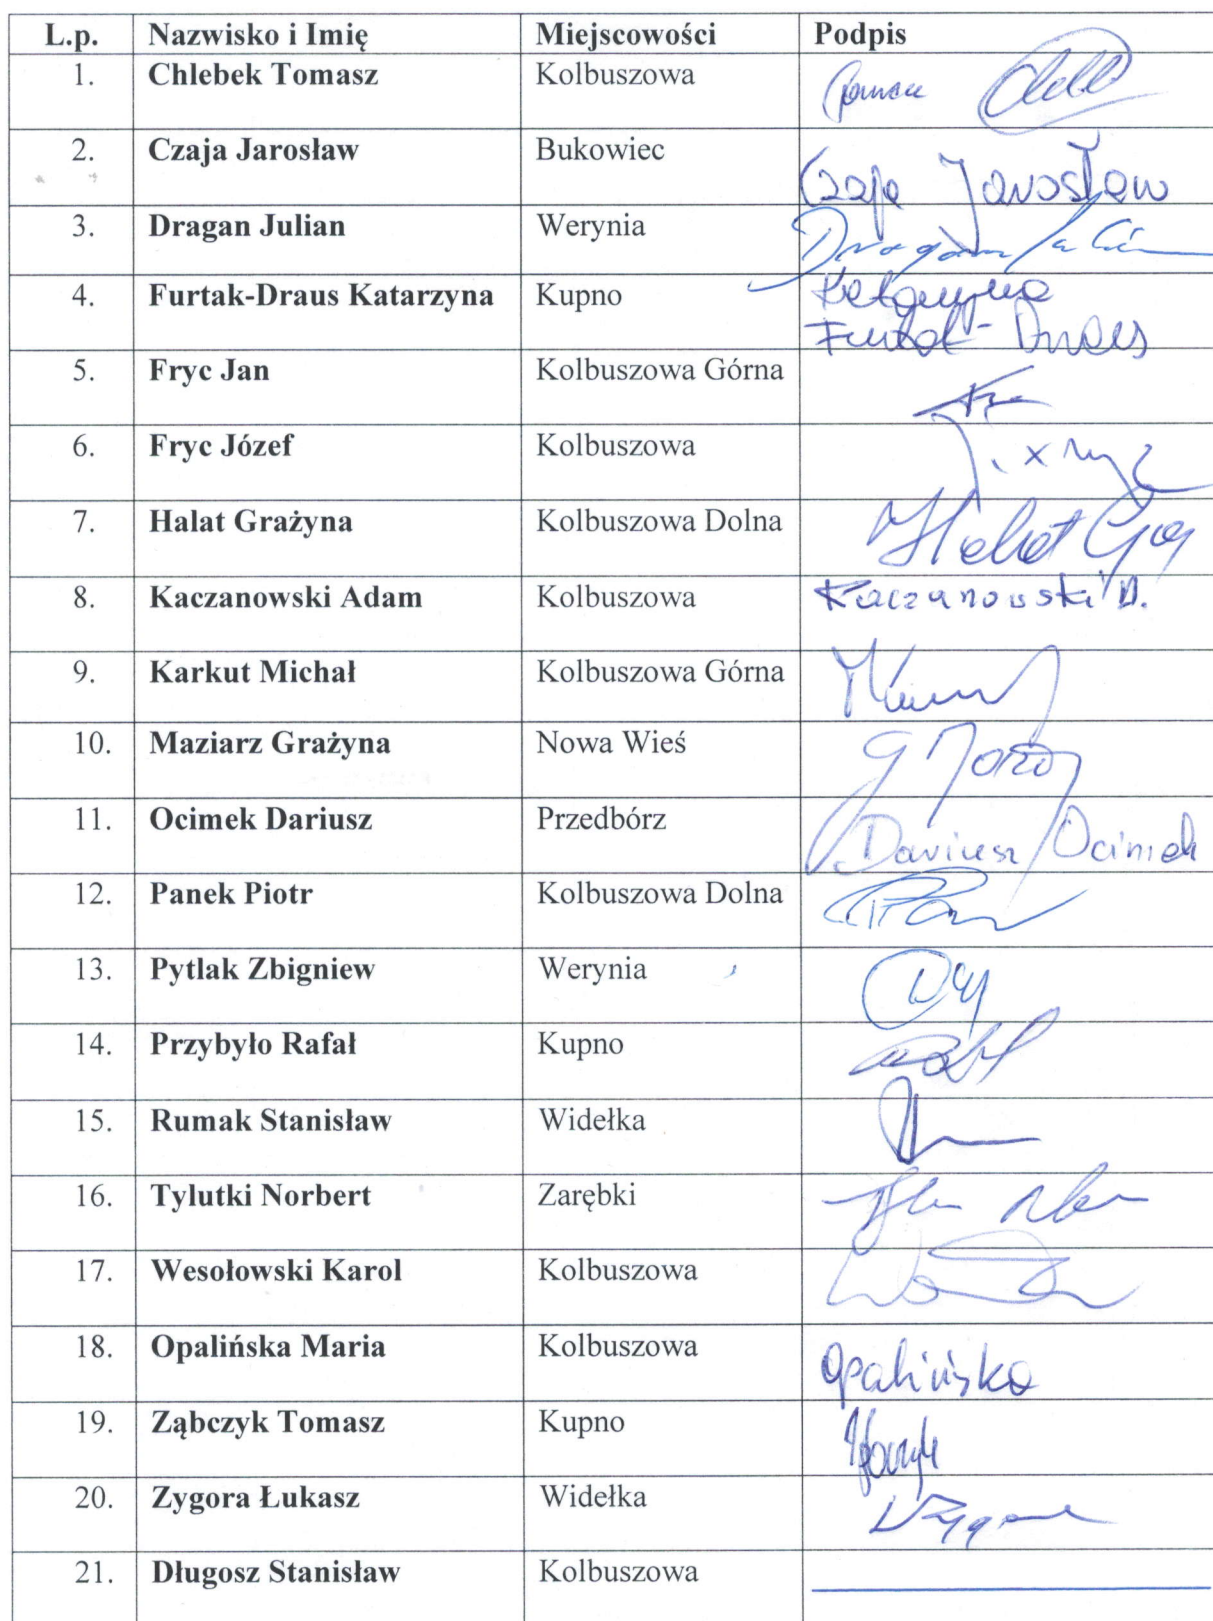 L.p. Nazwisko i Imię Miejscowości Podpis
1. Chlebek Tomasz Kolbuszowa
2. Czaja Jarosław Bukowiec Czaja Jarosław
3. Dragan Julian Werynia Dragan Julian
4. Furtak-Draus Katarzyna Kupno Katarzyna
Furtak-Draus
5. Fryc Jan Kolbuszowa Górna
6. Fryc Józef Kolbuszowa
7. Halat Grażyna Kolbuszowa Dolna Halat
8. Kaczanowski Adam Kolbuszowa Kaczanowski A.
9. Karkut Michał Kolbuszowa Górna
10. Maziarz Grażyna Nowa Wieś
11. Ocimek Dariusz Przedbórz Dariusz Ocimek
12. Panek Piotr Kolbuszowa Dolna
13. Pytlak Zbigniew Werynia
14. Przybyło Rafał Kupno
15. Rumak Stanisław Widełka
16. Tylutki Norbert Zarębki
17. Wesołowski Karol Kolbuszowa
18. Opalińska Maria Kolbuszowa Opalińska
19. Ząbczyk Tomasz Kupno
20. Zygora Łukasz Widełka
21. Długosz Stanisław Kolbuszowa